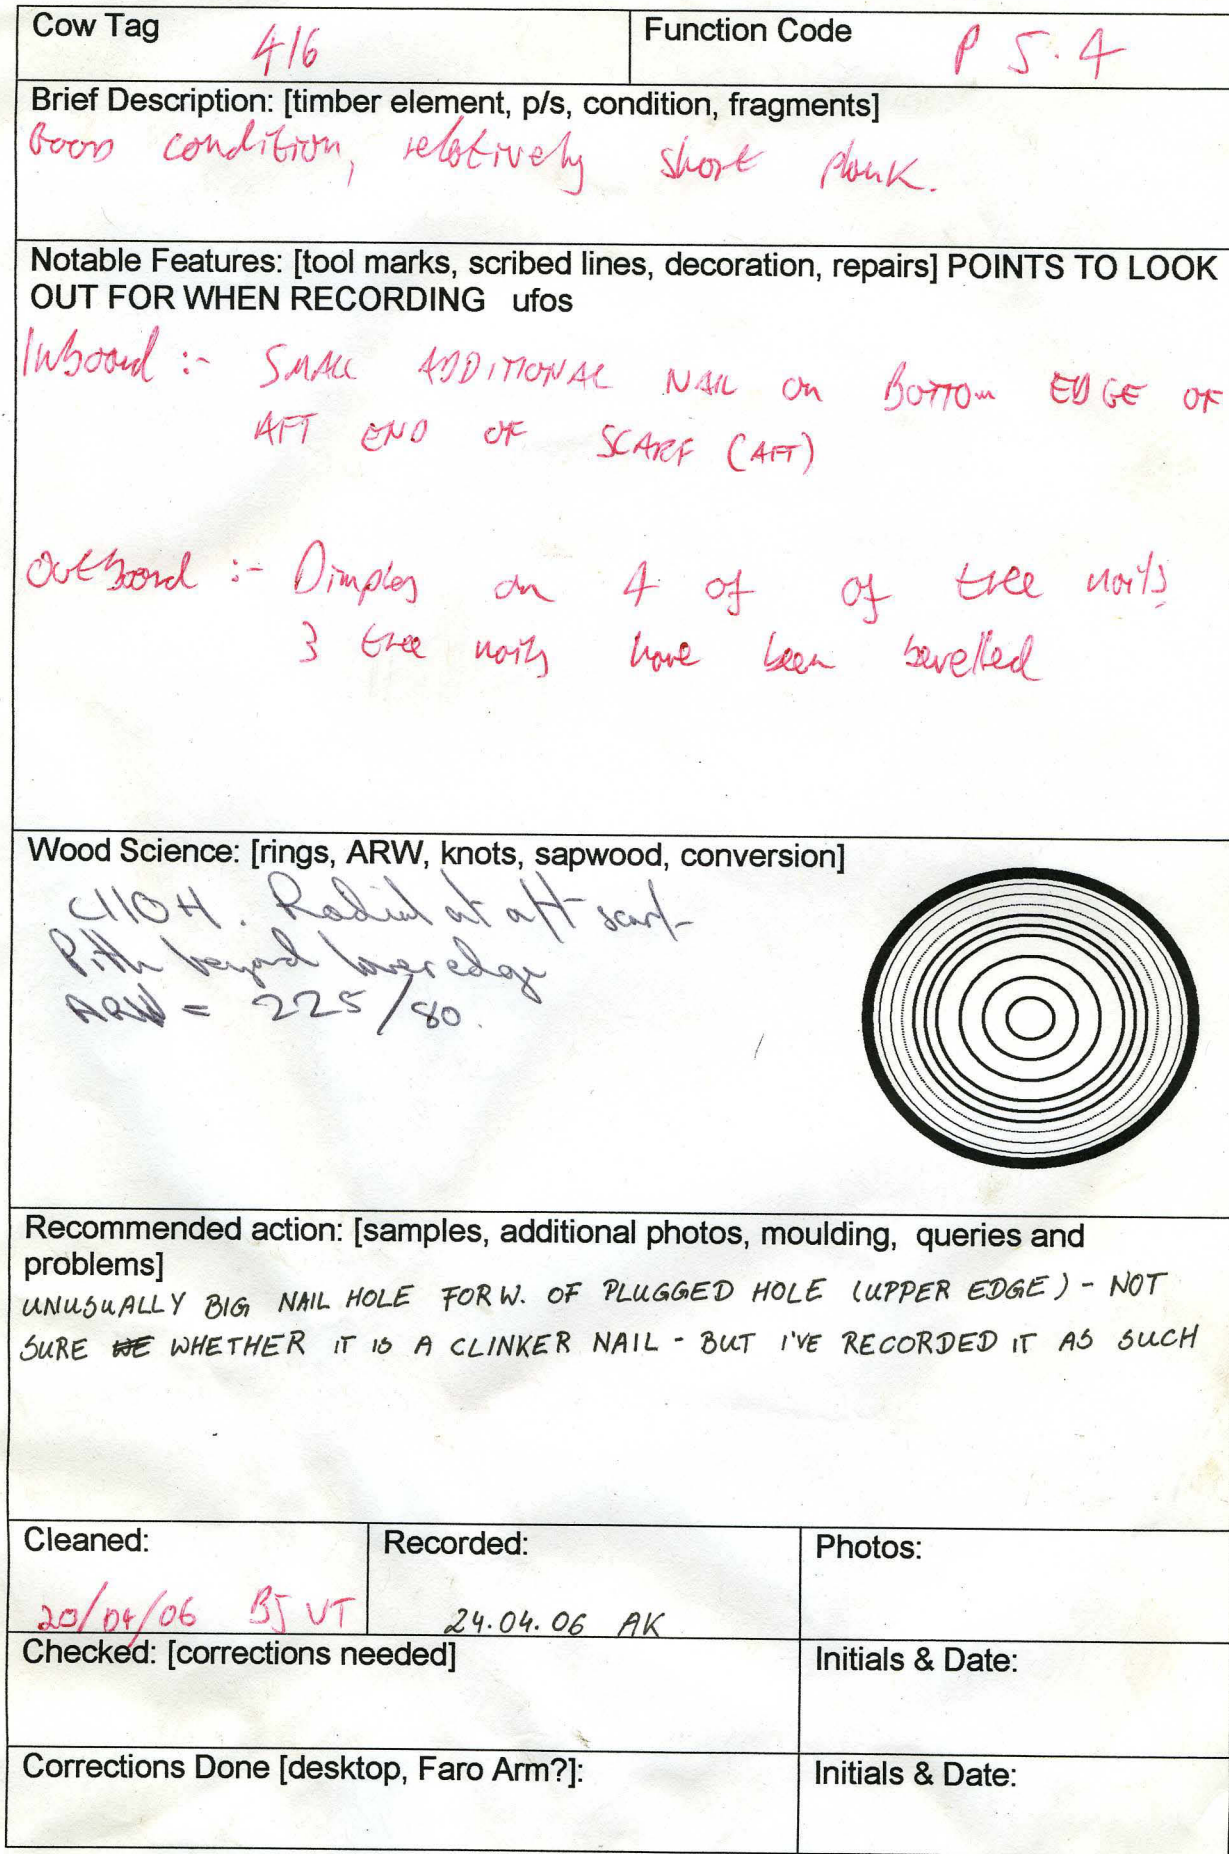 Cow Tag 416
Function Code P 5.4
Brief Description: [timber element, p/s, condition, fragments]
Good condition, relatively short plank.
Notable Features: [tool marks, scribed lines, decoration, repairs] POINTS TO LOOK
OUT FOR WHEN RECORDING ufos
Inboard :- SMALL ADDITIONAL NAIL on BOTTOM EDGE OF
AFT END OF SCARF (AFT)
Outboard :- Dimples on 4 of of tree nails
3 tree nails have been bevelled
Wood Science: [rings, ARW, knots, sapwood, conversion]
Radial at aft scarf
Pith beyond lower edge
ARW = 225/80.
Recommended action: [samples, additional photos, moulding, queries and
problems]
UNUSUALLY BIG NAIL HOLE FORW. OF PLUGGED HOLE (UPPER EDGE) - NOT
SURE WHETHER IT IS A CLINKER NAIL - BUT I'VE RECORDED IT AS SUCH
Cleaned:
Recorded:
Photos:
20/04/06 BJ VT
24.04.06 AK
Checked: [corrections needed]
Initials & Date:
Corrections Done [desktop, Faro Arm?]:
Initials & Date: